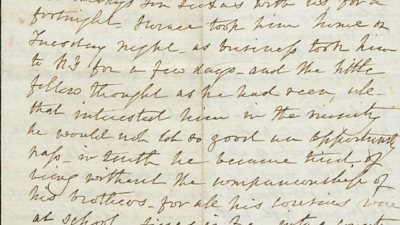 with us, for a
fortnight. Horace took him home on
Tuesday night, as business took him
to N.Y. for a few days - and the little
fellow thought as he had seen, all
that interested him in the
he would not let so good an opportunity
pass - in truth he became tired, of
being without the companionship of
his brothers - for all his cousins were
at school